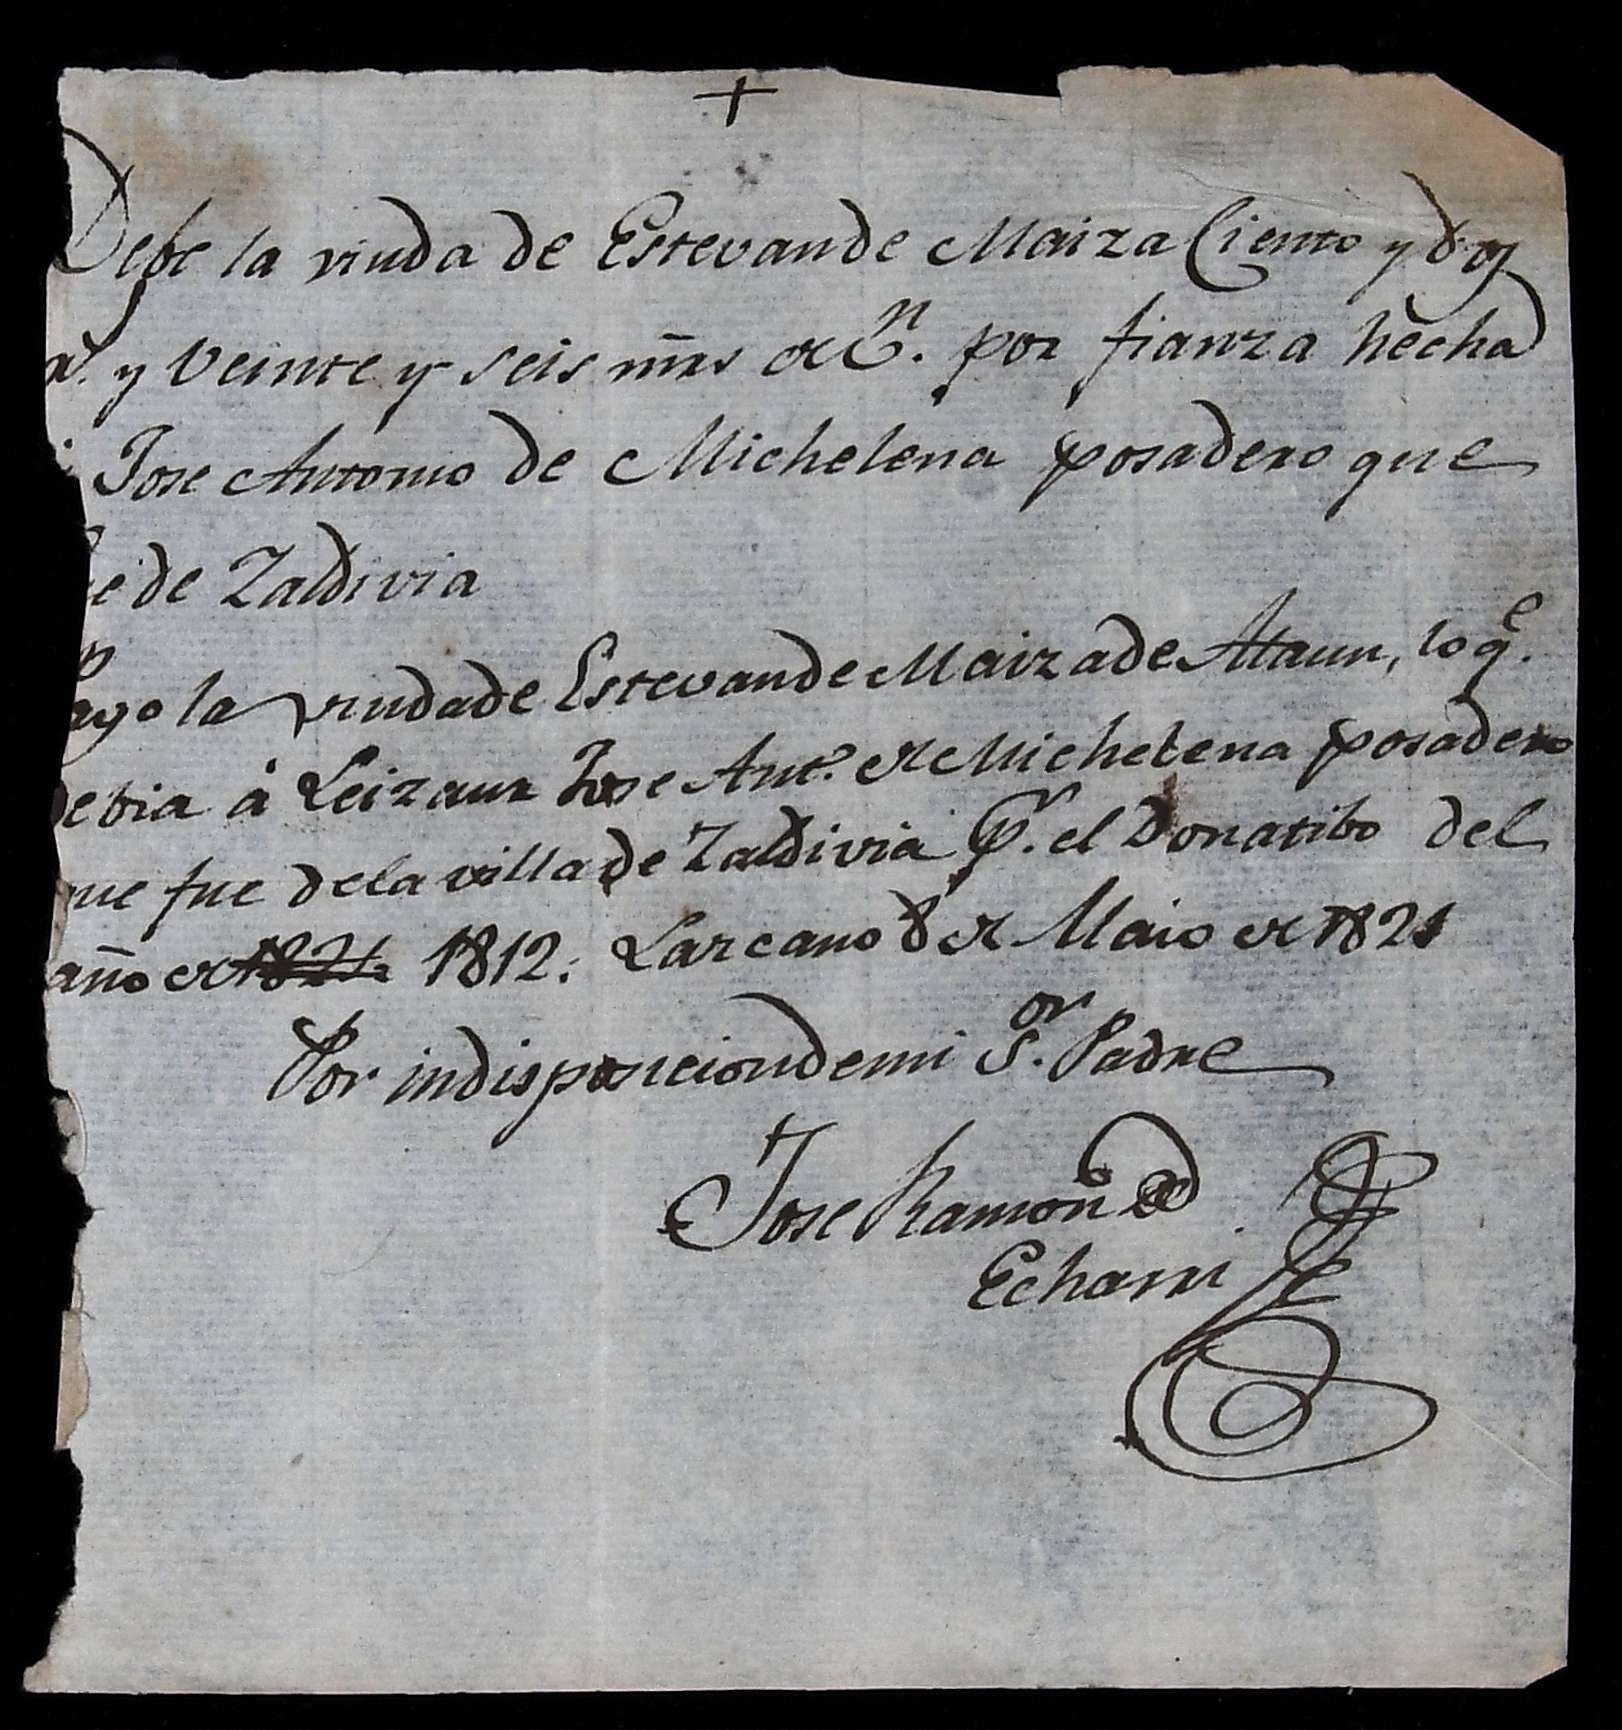 +
Debe la viuda de Estevan de Maiza Ciento y dos
rs. y veinte y seis mrs de vn. por fianza hecha
Jose Antonio de Michelena posadero que
fue de Zaldivia
Pago la viuda de Estevan de Maiza de Ataun, lo qe.
debia á Leizaur Jose Anto. de Michelena posadero
que fue de la villa de Zaldivia pr. el Donatibo del
año de 1821 1812. Lazcano 8 de Maio de 1821
Por indisposicion de mi Sor. Padre
Jose Ramon de
Echarri